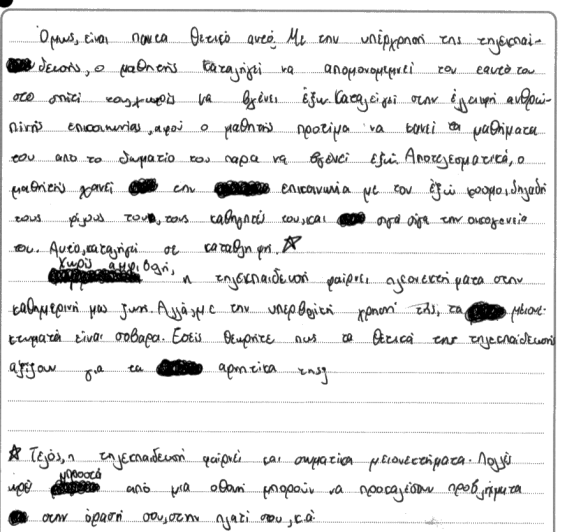 Όμως, είναι παντα θετικό αυτό. Με την υπέρχρηση της τηλεκπαί-
δευσής, ο μαθητής καταλήγει να απομονομεμνει τον εαυτό του
στο σπίτι του χωρίς να βγένει έξω. Καταλείγει στην έλειψη ανθρώ-
πινής επικοινωνίας, αφού ο μαθητής προτιμα να κανεί τα μαθήματα
του απο το δωματιο του παρα να βγένει εξω. Αποτελεσματικά, ο
μαθητής χανεί την επικοινωνία με τον έξω κοσμο, δηλαδή
τους φίλους του, τους καθηγητές του, και σιγά σίγα την οικογενεία
του. Αυτό, καταλήγη σε καταθληψη. ☆
Χωρίς αμφιβολή, η τηλεκπαιδευσή φαίρνει πλεονεκτήματα στην
καθημερινή μας ζωη. Αλλά, με την υπερβολική χρησή της, τα μειονε-
κτηματά είναι σοβαρα. Εσείς θεωρήτε πως τα θετικά της τηλεκπαίδευσή
αξίζουν για τα αρητικα της;
☆ Τελός, η τηλεκπαιδευσή φαίρνεί και σωματικα μειονεκτήματα. Πολλές
ωρές μπροστά από μια οθονή μπορούν να προκαλέσουν προβλήματα
στην όρασή σου, στην πλατί σου, κ.ά.